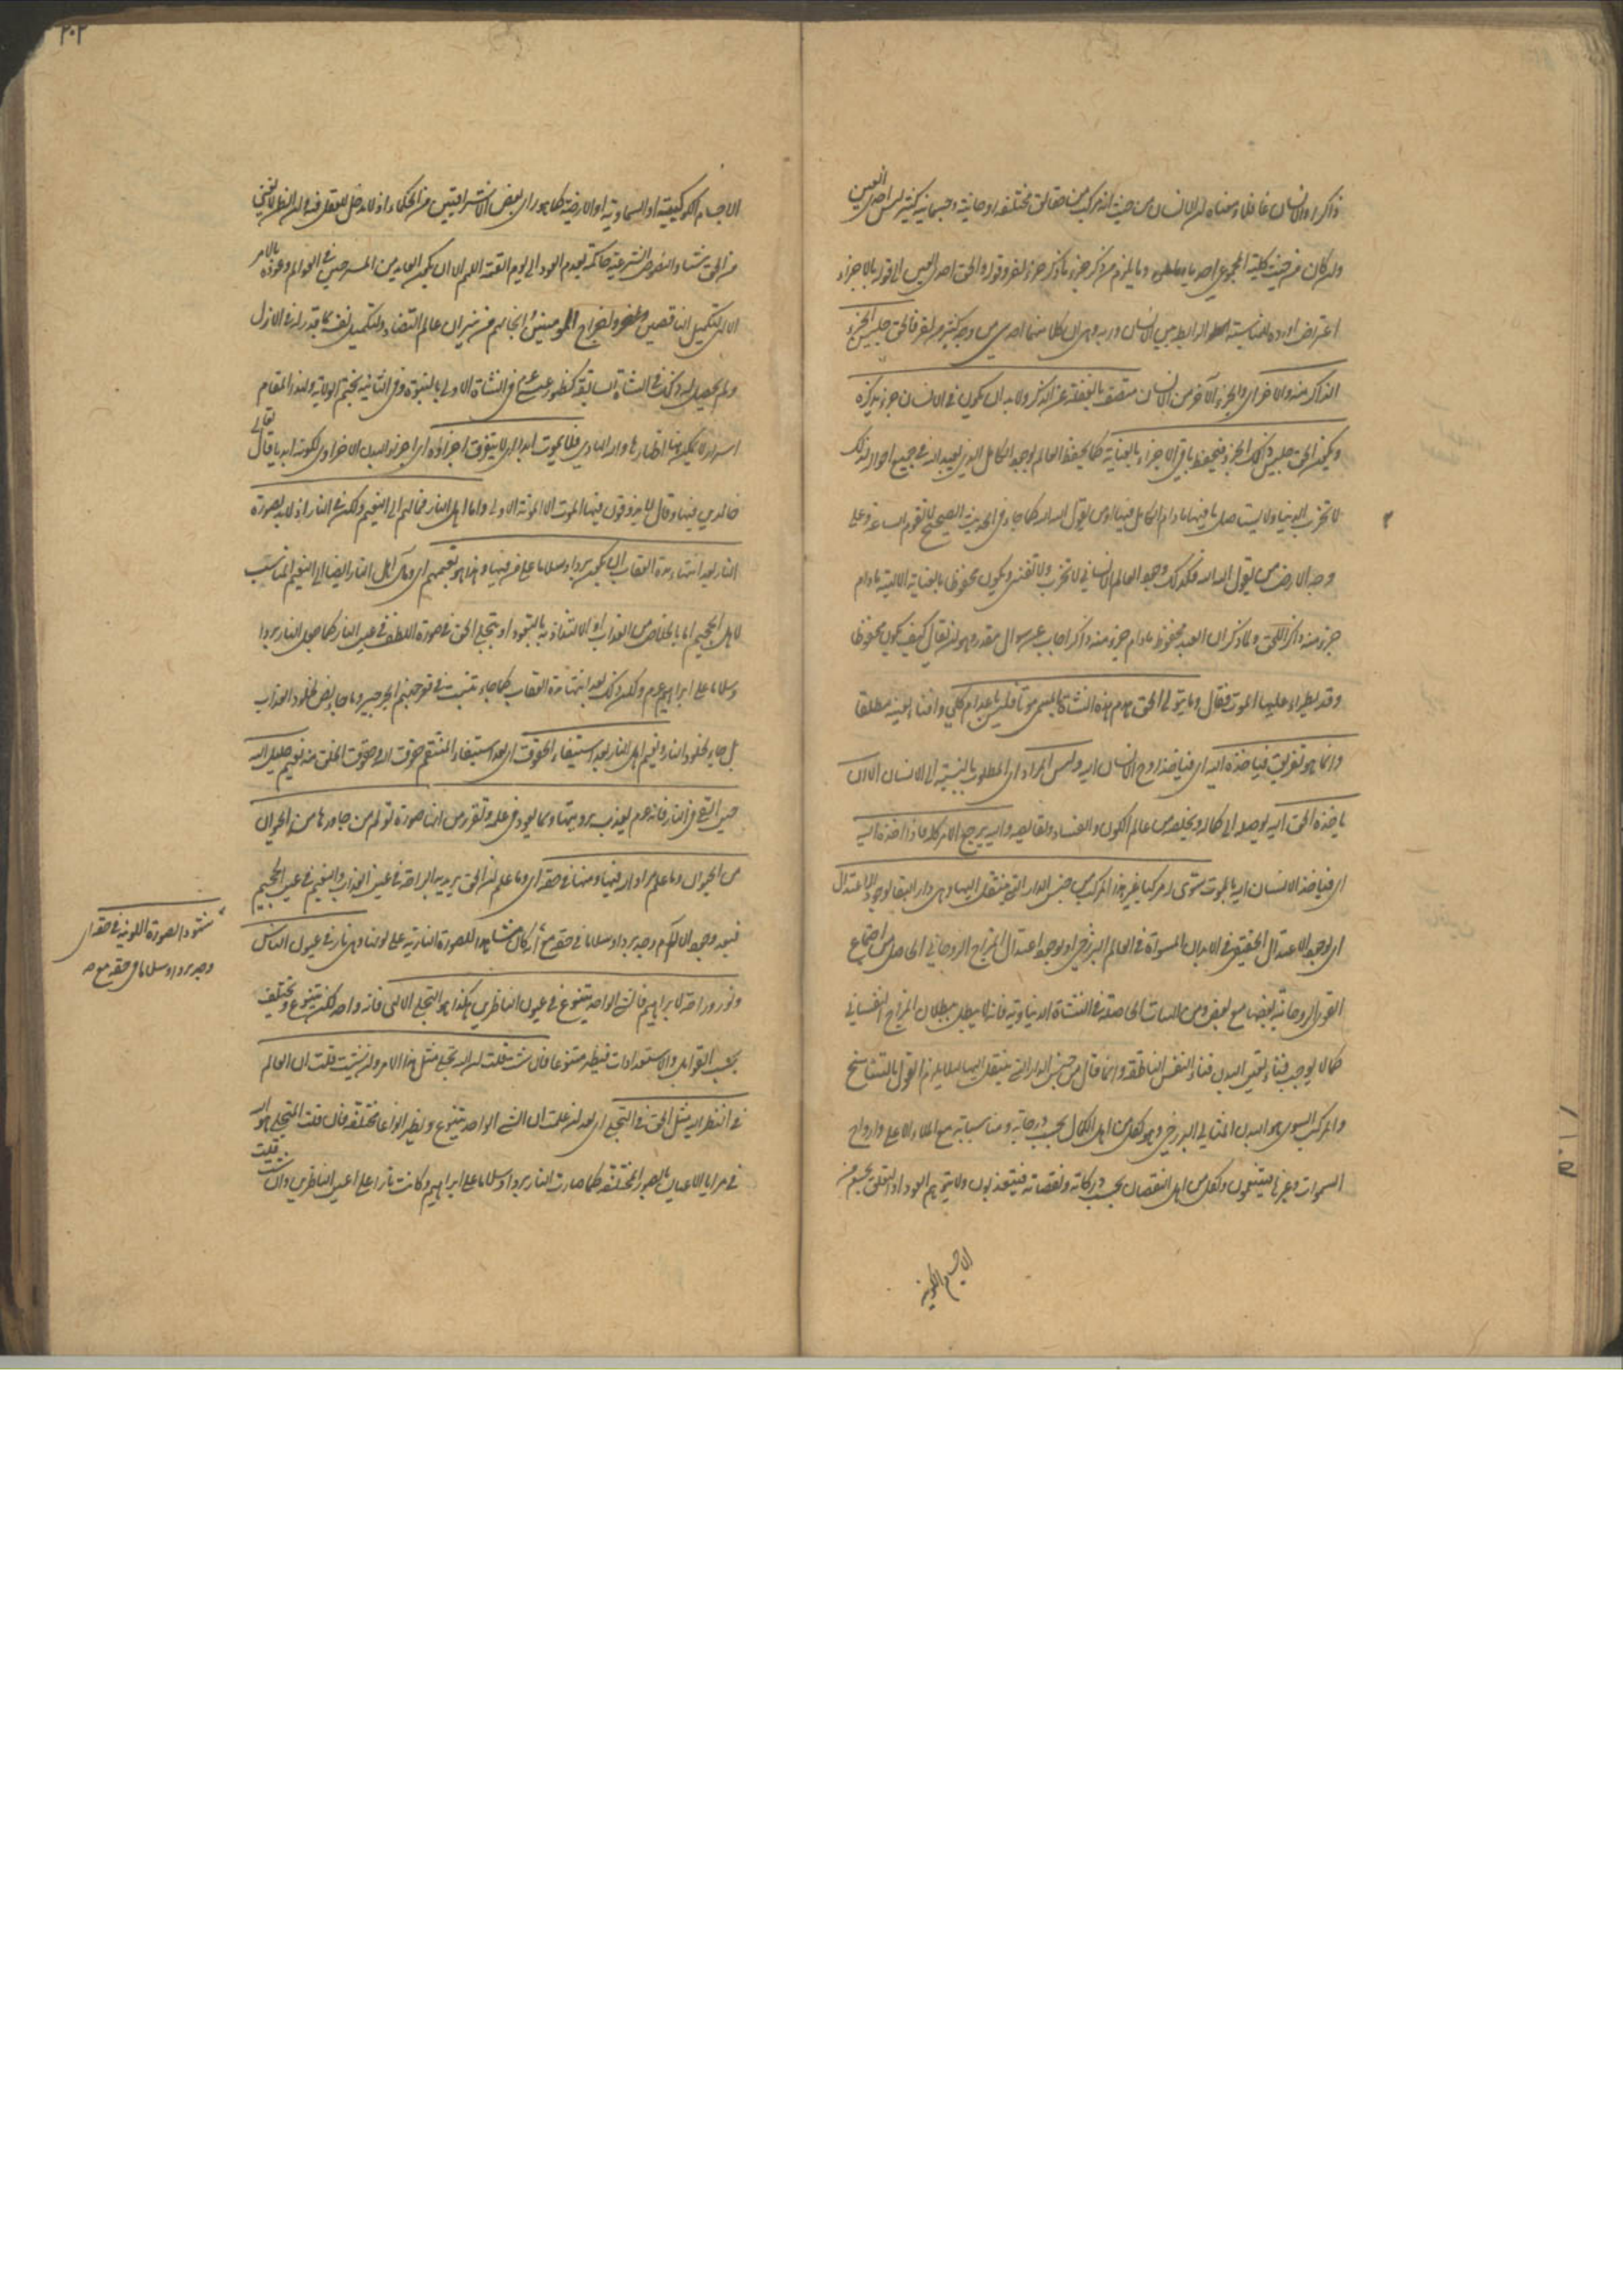 ذاكرا والانسان غافلا ومعناه ان الانسان من حيث انه مركب من حقائق مختلفة روحانية وجسمانية كثير ليس احدي العين
وان كان من حيث كليته المجموعي احديا وما يلزم من ذكر جزء ما ذكر جزء اخر وقوله والحق احدي العين الى قوله بالاجزاء
اعتراض اورده لمناسبة الرابطة بين الانسان وربه وهي ان كلا منهما احدي من وجه كثير من اخر فالحق جليس الجزء
الذاكر منه والاخر اي والجزء الاخر من الانسان متصف بالغفلة عن الذكر ولا بد ان يكون في الانسان جزء يذكره
ويكون الحق جليس ذلك الجزء فيحفظ باقي الاجزاء بالعناية كما يحفظ العالم بوجود الكامل الذي يعبد الله في جميع احواله لذلك
لا تخرب الدنيا ولا يستاصل ما فيها ما دام الكامل فيها او من يقول الله الله كما جاء في الحديث الصحيح لا تقوم الساعة وعلى
وجه الارض من يقول الله الله فكذلك وجود العالم الانساني لا تخرب ولا تفنى ويكون محفوظا بالعناية الالهية ما دام
جزء منه ذاكرا للحق ولما ذكر ان العبد محفوظ ما دام جزء منه ذاكرا جاب عن سوال مقدر وهو ان يقال كيف يكون محفوظا
وقد يطراء عليها الموت فقال وما يتولى الحق هدم هذه النشاة بالمسمى موتا فليس باعدام كلي وافناء لعينه مطلقا
وانما هو تفريق فياخذه اليه اي فياخذ روح الانسان اليه وليس المراد اي المطلوب بالنسبة الى الانسان الا ان
ياخذه الحق اليه ليوصله الى كماله ويخلصه من عالم الكون والفساد ونقايصه واليه يرجع الامر كله فاذا اخذه اليه
اي فياخذ الانسان اليه بالموت سوى له مركبا غير هذا المركب من جنس الدار التي ينتقل اليها وهي دار البقاء لوجود الاعتدال
اي لوجود الاعتدال الحقيقي في الابدان المسواة في العالم البرزخي او لوجود اعتدال المزاج الروحاني الحاصل من اجتماع
القوى الروحانية بعضها مع بعض ومن الحاصلة في النشاة الدنياوية فانه لا يبطل ببطلان المزاج النفساني
كما لا يوجب فناء تعين البدن فناء النفس الناطقة وانما قال من جنس الدار التي ينتقل اليها لئلا يلزم القول بالتناسخ
والمركب المسوى هو البدن المثالي البرزخي وهو لكل من اهل الكمال بحسب درجاته ومناسباته مع الملاء الاعلى وارواح
السموات وغيرها فيتنعمون ولكل من اهل النقصان بحسب دركاته ونقصاته فيتعذبون ولا يتوهم العود او التعلق بجسم من
الاجسام الكونية
٢٠٢
الاجسام الكوكبية او السماوية او الارضية كما هو راي بعض الاشراقيين من الحكماء اذ لا مدخل للعقل فيه
من الحق شاء والنصوص الشرعية حاكمة بعدم العود الى يوم القيمة اللهم الا ان يكون العايد من المسرحين في العوالم وعوده بالامر
الالهي لتكميل الناقصين ولاخراج المومنين وانجائهم من نيران عالم التضاد ولتكميل نفسه بما قدر له في الازل
ولم يحصل له ذلك في النشاة السابقة كظهور عيسى عم في النشاة الاولى بالنبوة وفي الثانية بختم الولاية ولهذا المقام
اسرار لا يمكن هنا اظهارها والله الهادي فلا يموت ابدا اي لا يتفرق اجزاؤه اي اجزاء البدن الاخراوي لكونه ابديا قال تعالى
خالدين فيها وقال لا يذوقون فيها الموت الا الموتة الاولى واما اهل النار فمالهم الى النعيم ولكن في النار اذ لا بد لصورة
النار بعد انتهاء مدة العقاب ان يكون بردا وسلاما على من فيها وهذا هو نعيمهم اي ومآل اهل النار ايضا الى النعيم المناسب
لاهل الجحيم اما بالخلاص من العذاب او الالتذاذ به بالتعود او بتجلي الحق في صورة اللطف في عين النار كما جعل النار بردا
وسلاما على ابراهيم عم ولكن ذلك بعد انتهاء مدة العقاب كما جاء ينبت في قعر جهنم الجرجير وما جاء نص بخلود العذاب
بل جاء بخلود النار ونعيم اهل النار بعد استيفاء الحقوق اي بعد استيفاء المنتقم حقوق الله وحقوق الخلق منه نعيم خليل الله
حين القي في النار فانه عم تعذب برويتها وبما تعود في علمه وتقرر من انها صورة تولم من جاورها من الحيوان
من الحيوان وما علم مراد الله فيها ومنها في حقه اي وما علم ان الحق يريد به الراحة في عين العذاب والنعيم في عين الجحيم
فبعد وجود الالام وجد بردا وسلاما في حقه مع انه كان مشاهدا للصورة النارية على لونها وهي نار في عيون الناس
ونور وراحة لابراهيم فالشئ الواحد يتنوع في عيون الناظرين هكذا هو التجلي الالهي فانه واحد لكنه يتنوع ويختلف
بحسب القوابل والاستعدادات فيظهر متنوعا فان شئت قلت ان الله تجلى مثل هذا الامر وان شئت قلت ان العالم
في النظر اليه مثل الحق في التجلي اي بعد ان علمت ان الشئ الواحد يتنوع ويظهر انواعا مختلفة فان قلت المتجلي هو الله
في مرايا الاعيان بالصور المختلفة كما صارت النار بردا وسلاما على ابراهيم وكانت نارا على اعين الناظرين وان شئت قلت
شهود الصورة اللونية في حقه اي
وجد بردا وسلاما في حقه مع